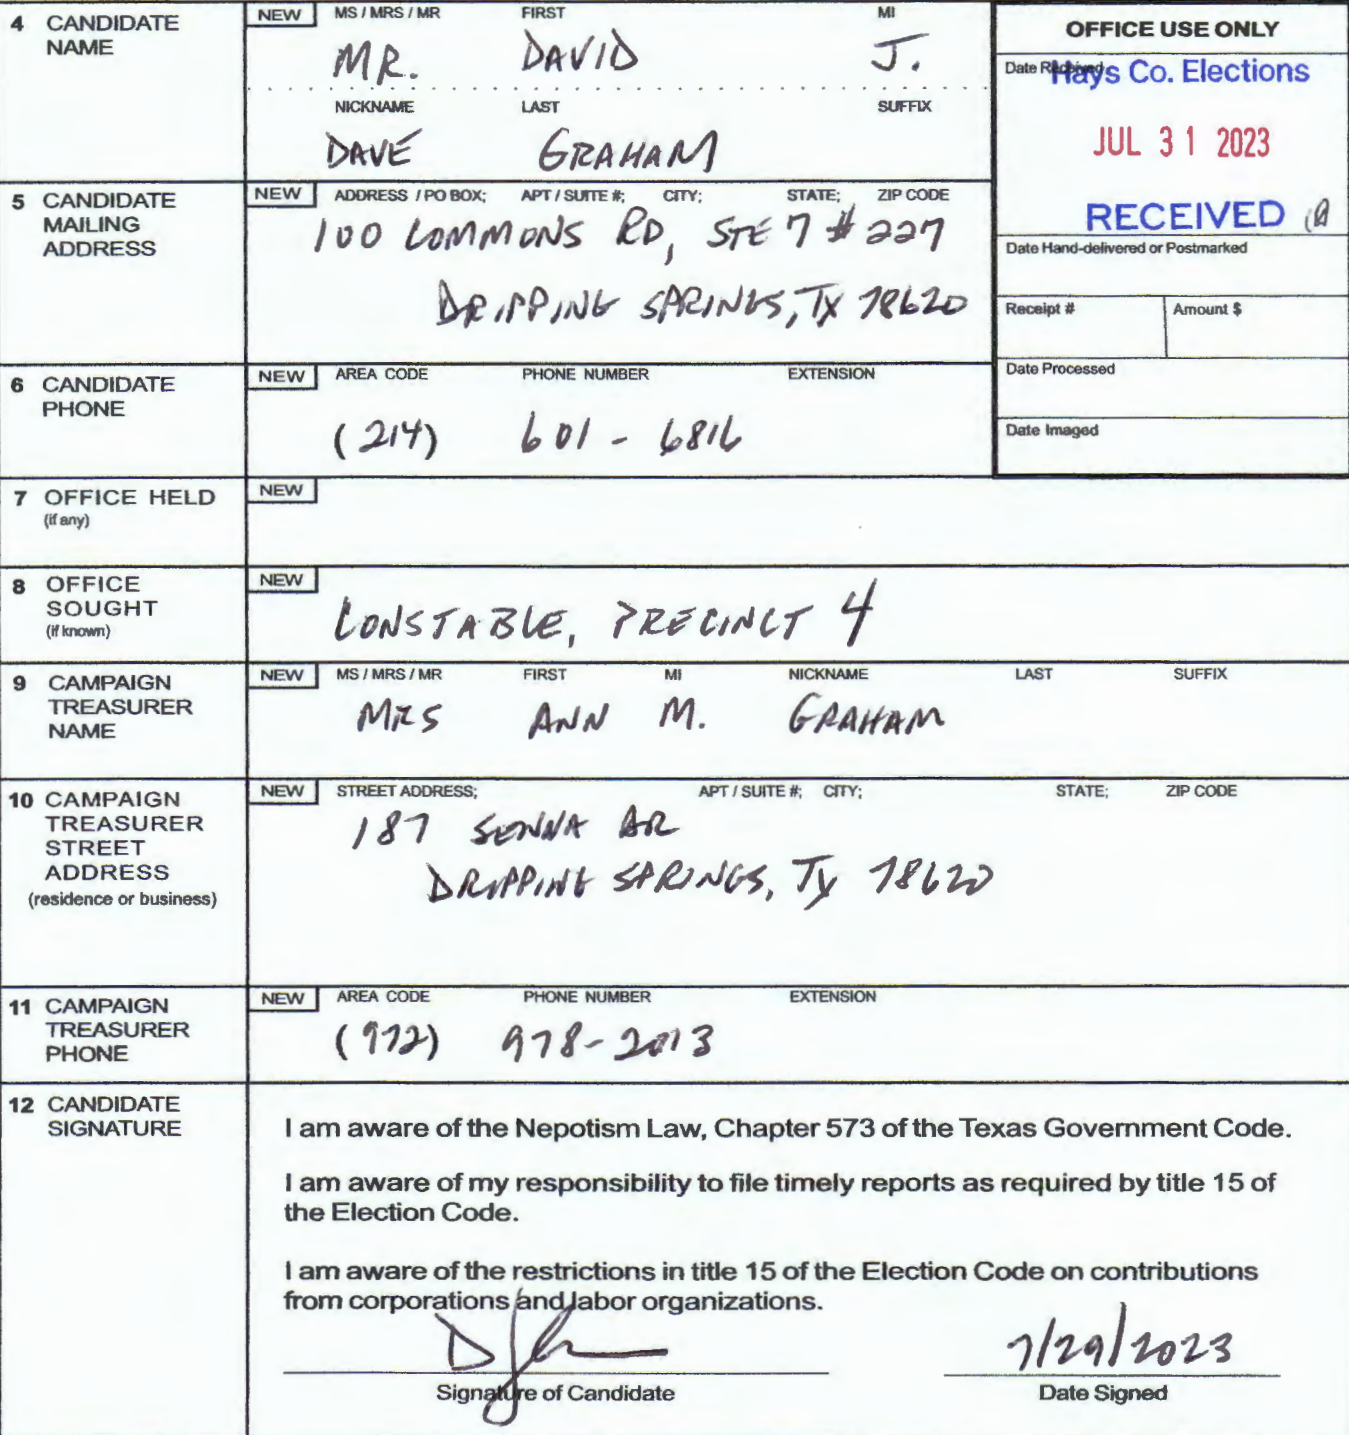 4 CANDIDATE NAME
NEW MS / MRS / MR FIRST MI
MR. DAVID J.
NICKNAME LAST SUFFIX
DAVE GRAHAM
OFFICE USE ONLY
Date Received
Hays Co. Elections
JUL 31 2023
RECEIVED
Date Hand-delivered or Postmarked
Receipt # Amount $
Date Processed
Date Imaged
5 CANDIDATE MAILING ADDRESS
NEW ADDRESS / PO BOX; APT / SUITE #; CITY; STATE; ZIP CODE
100 COMMONS RD, STE 7 # 227
DRIPPING SPRINGS, TX 78620
6 CANDIDATE PHONE
NEW AREA CODE PHONE NUMBER EXTENSION
(214) 601-6816
7 OFFICE HELD
(if any)
NEW
8 OFFICE SOUGHT
(if known)
NEW
CONSTABLE, PRECINCT 4
9 CAMPAIGN TREASURER NAME
NEW MS / MRS / MR FIRST MI NICKNAME LAST SUFFIX
MRS ANN M. GRAHAM
10 CAMPAIGN TREASURER STREET ADDRESS
(residence or business)
NEW STREET ADDRESS; APT / SUITE #; CITY; STATE; ZIP CODE
187 SENNA DR
DRIPPING SPRINGS, TX 78620
11 CAMPAIGN TREASURER PHONE
NEW AREA CODE PHONE NUMBER EXTENSION
(972) 978-2013
12 CANDIDATE SIGNATURE
I am aware of the Nepotism Law, Chapter 573 of the Texas Government Code.
I am aware of my responsibility to file timely reports as required by title 15 of
the Election Code.
I am aware of the restrictions in title 15 of the Election Code on contributions
from corporations and labor organizations.
7/29/2023
Signature of Candidate Date Signed